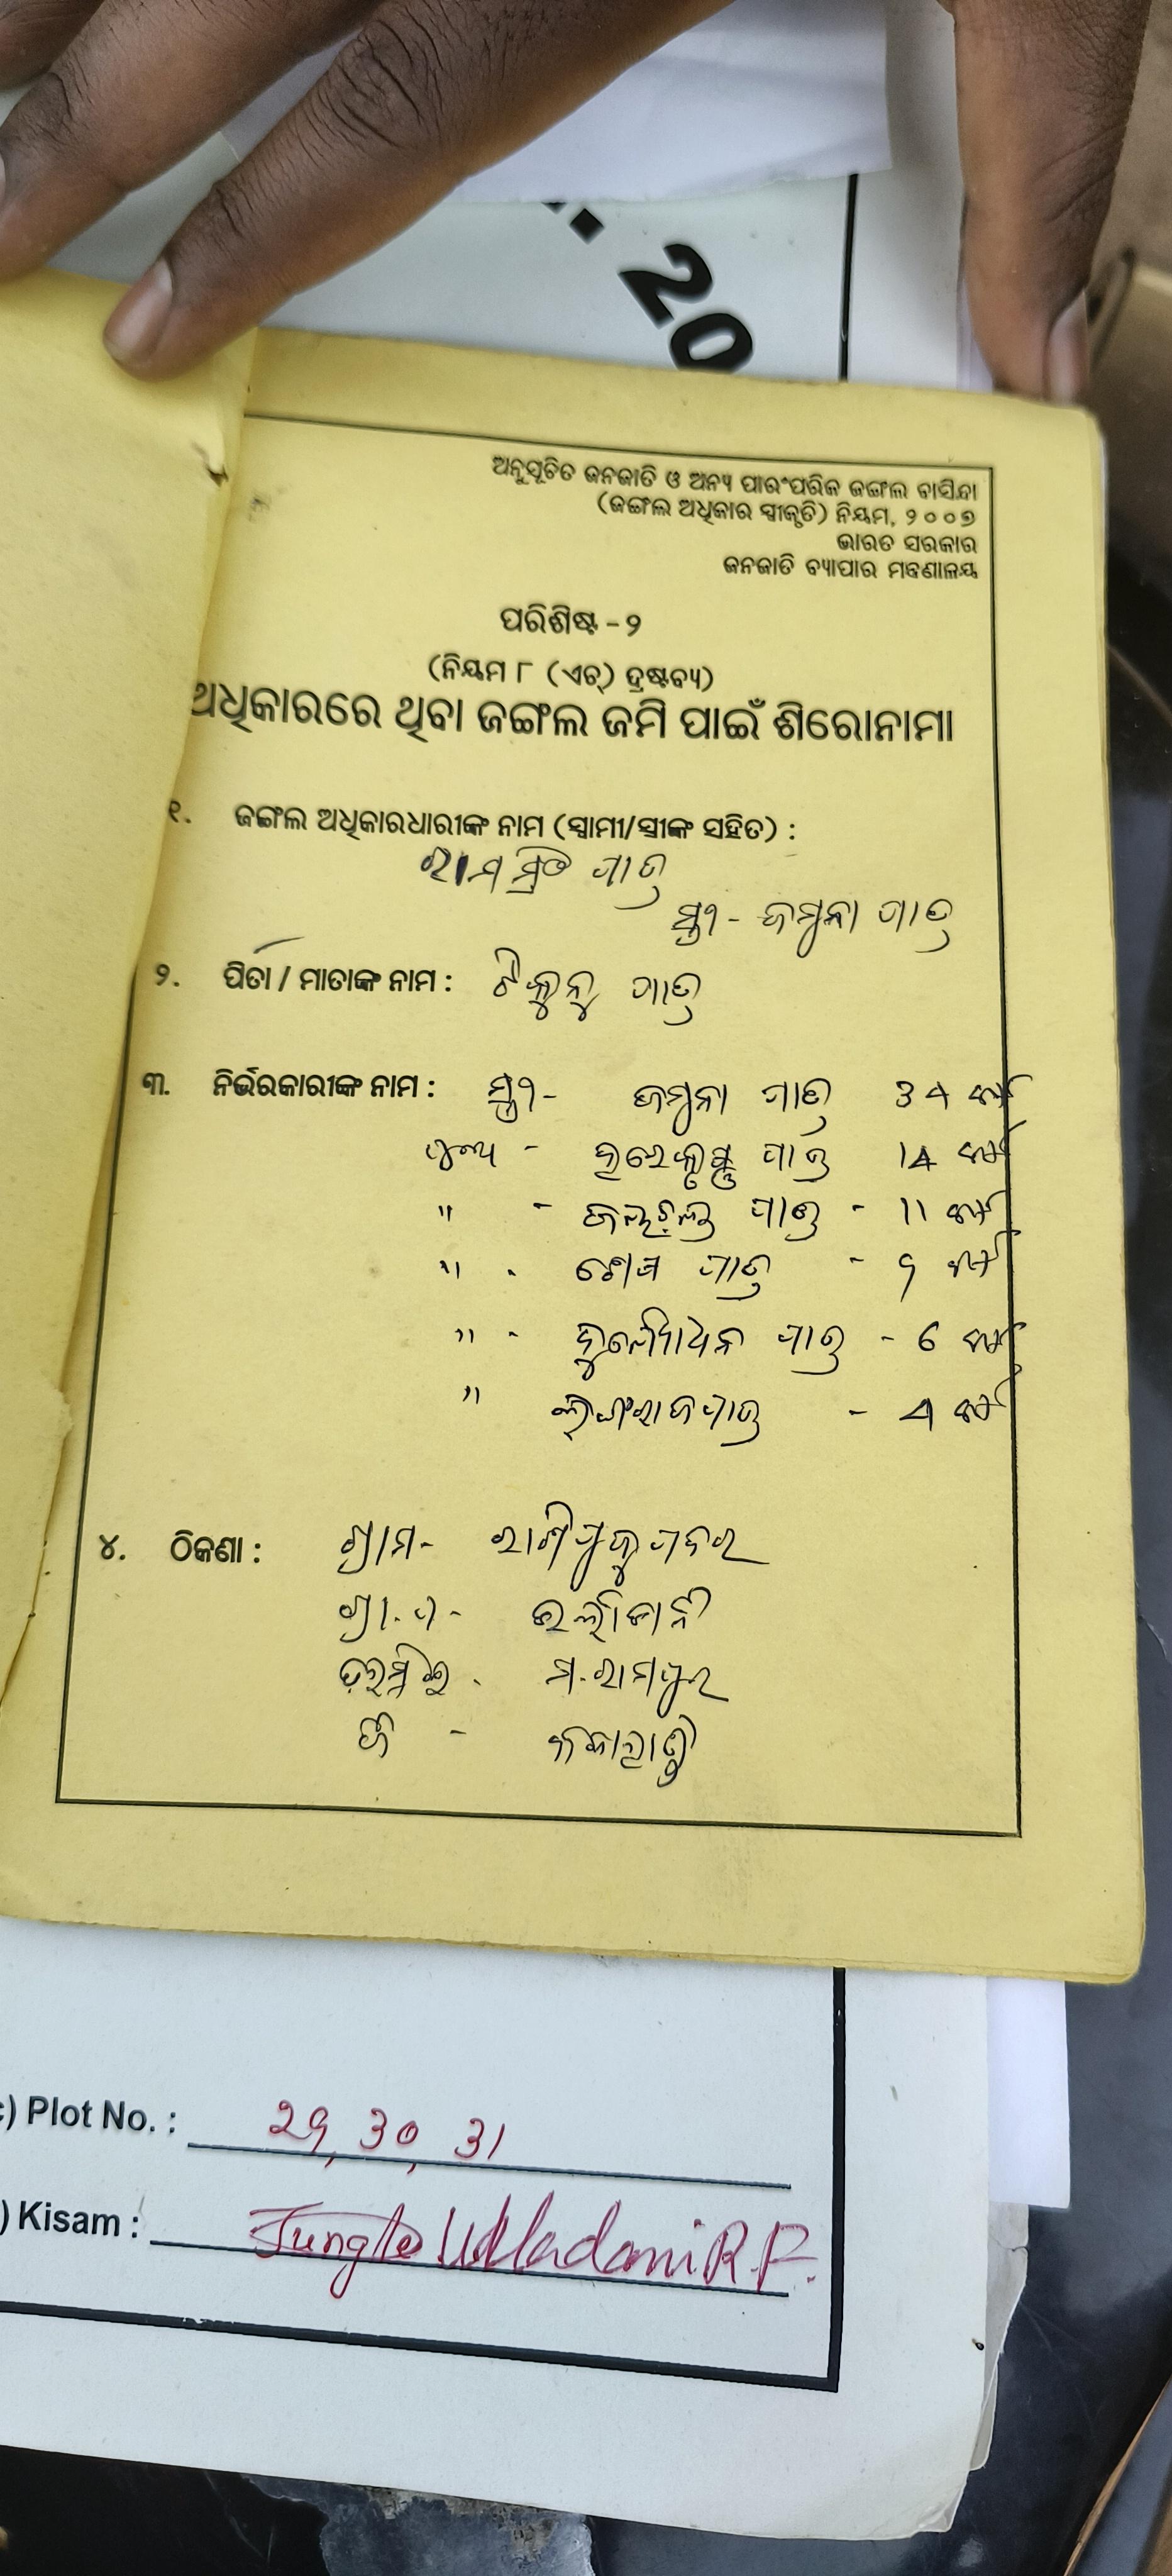 20
ଅନୁସୂଚିତ ଜନଜାତି ଓ ଅନ୍ୟ ପାରଂପରିକ ଜଙ୍ଗଲ ବାସିନ୍ଦା
(ଜଙ୍ଗଲ ଅଧିକାର ସ୍ୱୀକୃତି) ନିୟମ, ୨୦୦୭
ଭାରତ ସରକାର
ଜନଜାତି ବ୍ୟାପାର ମନ୍ତ୍ରଣାଳୟ
ପରିଶିଷ୍ଟ - ୨
(ନିୟମ ୮ (ଏଚ୍) ଦ୍ରଷ୍ଟବ୍ୟ)
ଅଧିକାରରେ ଥିବା ଜଙ୍ଗଲ ଜମି ପାଇଁ ଶିରୋନାମା
୧. ଜଙ୍ଗଲ ଅଧିକାରଧାରୀଙ୍କ ନାମ (ସ୍ୱାମୀ/ସ୍ତ୍ରୀଙ୍କ ସହିତ) :
ପାତ୍ର
ସ୍ତ୍ରୀ - ଜମୁନା ପାତ୍ର
୨. ପିତା / ମାତାଙ୍କ ନାମ : ପାତ୍ର
୩. ନିର୍ଭରକାରୀଙ୍କ ନାମ : ସ୍ତ୍ରୀ - ଜମୁନା ପାତ୍ର 34 ବର୍ଷ
ପୁଅ - ହରେକୃଷ୍ଣ ପାତ୍ର 14 ବର୍ଷ
" - ପାତ୍ର - 11 ବର୍ଷ
" - ପାତ୍ର - 9 ବର୍ଷ
" - ଦୁର୍ଯ୍ୟୋଧନ ପାତ୍ର - 6 ବର୍ଷ
" ପାତ୍ର - 4 ବର୍ଷ
୪. ଠିକଣା : ଗ୍ରାମ -
ଗ୍ରା. ପ -
ମ. ରାମପୁର
ଜି - କଳାହାଣ୍ଡି
c) Plot No. : 29, 30, 31
) Kisam : Jungle Udladani R.F.